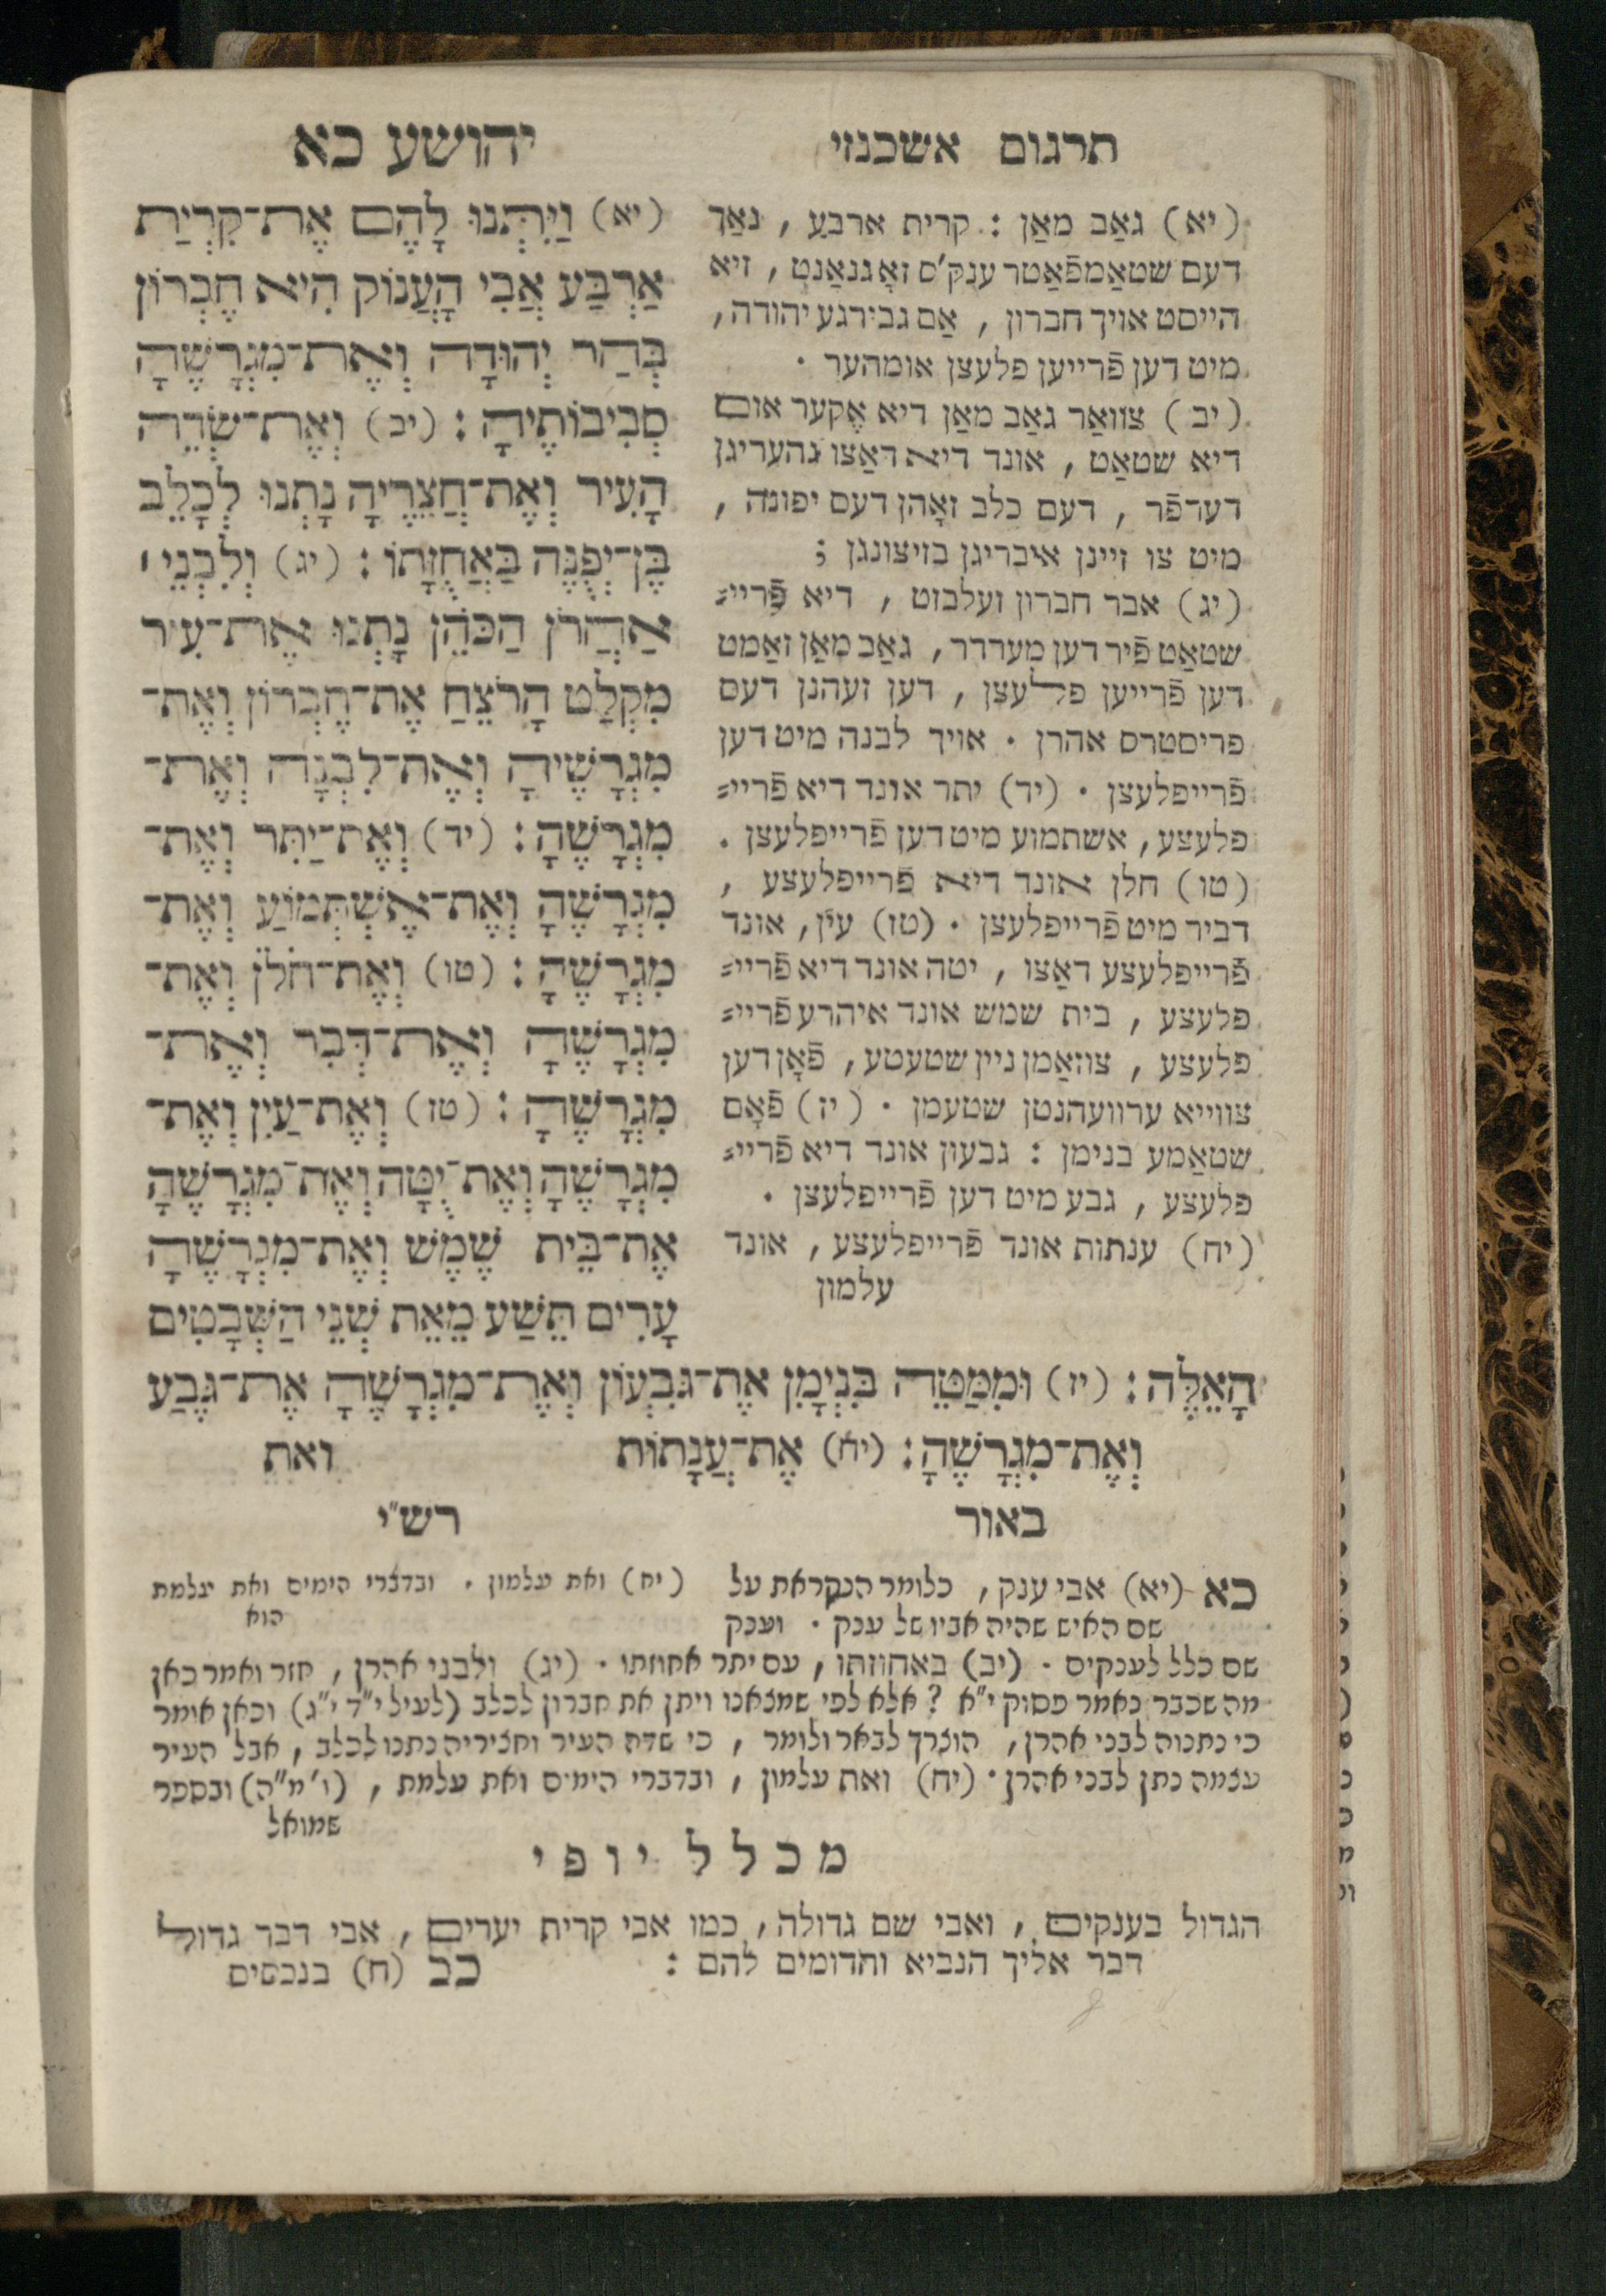 תרגום אשכנזי
(יא) גאַב מאַן : קרית ארבע , נאַך
דעם שטאַמפֿאַטר ענק'ס זאָגנאַנט , זיא
הייסט אויך חברון , אַם גבירגע יהודה ,
מיט דען פֿרייען פלעצן אומהער .
(יב) צוואַר גאַב מאַן דיא אֶקער אום
דיא שטאַט , אונד דיא דאַצו גהעריגן
דערפֿר , דעם כלב זאָהן דעס יפונה ,
מיט צו זיינן איבריגן בזיצונגן ;
(יג) אבר חברון זעלבזט , דיא פֿריי=
שטאַט פֿיר דען מערדר , גאַב מאַן זאַמט
דען פֿרייען פלעצן , דען זעהנן דעס
פריסטרס אהרן . אויך לבנה מיט דען
פֿרייפלעצן . (יד) יתר אונד דיא פֿריי=
פלעצע , אשתמוע מיט דען פֿרייפלעצן .
(טו) חלן אונד דיא פֿרייפלעצע ,
דביר מיט פֿרייפלעצן . (טז) עין , אונד
פֿרייפלעצע דאַצו , יטה אונד דיא פֿריי=
פלעצע , בית שמש אונד איהרע פֿריי=
פלעצע , צוזאַמן ניין שטעטע , פֿאָן דען
צווייא ערוועהנטן שטעמן . (יז) פֿאָם
שטאַמע בנימן : גבעון אונד דיא פֿריי=
פלעצע , גבע מיט דען פֿרייפלעצן .
(יח) ענתות אונד פֿרייפלעצע , אונד
עלמון
יהושע כא
(יא) וַיִּתְּנוּ לָהֶם אֶת־קִרְיַת
אַרְבַּע אֲבִי הָעֲנוֹק הִיא חֶבְרוֹן
בְּהַר יְהוּדָה וְאֶת־מִגְרָשֶׁהָ
סְבִיבוֹתֶיהָ : (יב) וְאֶת־שְׂדֵה
הָעִיר וְאֶת־חֲצֵרֶיהָ נָתְנוּ לְכָלֵב
בֶּן־יְפֻנֶּה בַּאֲחֻזָּתוֹ : (יג) וְלִבְנֵי ׀
אַהֲרֹן הַכֹּהֵן נָתְנוּ אֶת־עִיר
מִקְלַט הָרֹצֵחַ אֶת־חֶבְרוֹן וְאֶת־
מִגְרָשֶׁיהָ וְאֶת־לִבְנָה וְאֶת־
מִגְרָשֶׁהָ : (יד) וְאֶת־יַתִּר וְאֶת־
מִגְרָשֶׁהָ וְאֶת־אֶשְׁתְּמוֹעַ וְאֶת־
מִגְרָשֶׁהָ : (טו) וְאֶת־חֹלֹן וְאֶת־
מִגְרָשֶׁהָ וְאֶת־דְּבִר וְאֶת־
מִגְרָשֶׁהָ : (טז) וְאֶת־עַיִן וְאֶת־
מִגְרָשֶׁהָ וְאֶת־יֻטָּה וְאֶת־מִגְרָשֶׁהָ
אֶת־בֵּית שֶׁמֶשׁ וְאֶת־מִגְרָשֶׁהָ
עָרִים תֵּשַׁע מֵאֵת שְׁנֵי הַשְּׁבָטִים
הָאֵלֶּה : (יז) וּמִמַּטֵּה בִּנְיָמִן אֶת־גִּבְעוֹן וְאֶת־מִגְרָשֶׁהָ אֶת־גֶּבַע
וְאֶת־מִגְרָשֶׁהָ : (יח) אֶת־עֲנָתוֹת ואת
באור
כא (יא) אבי ענק , כלומר הנקראת על
שם האיש שהיה אביו של ענק . וענק
רש"י
(יח) ואת עלמון . ובדברי הימים ואת עלמת
הוא
שם כלל לענקים . (יב) באחוזתו , עם יתר אחוזתו . (יג) ולבני אהרן , חזר ואמר כאן
מה שכבר נאמר פסוק י"א ? אלא לפי שמצאנו ויתן את חברון לכלב (לעיל י"ד י"ג) וכאן אומר
כי נתנוה לבני אהרן , הוצרך לבאר ולומר , כי שדה העיר וחצריה נתנו לכלב , אבל העיר
עצמה נתן לבני אהרן . (יח) ואת עלמון , ובדברי הימים ואת עלמת , (ו' מ"ה) ובספר
שמואל
מכלל יופי
הגדול בענקים , ואבי שם גדולה , כמו אבי קרית יערים , אבי דבר גדול
דבר אליך הנביא והדומים להם : כב (ח) בנכסים